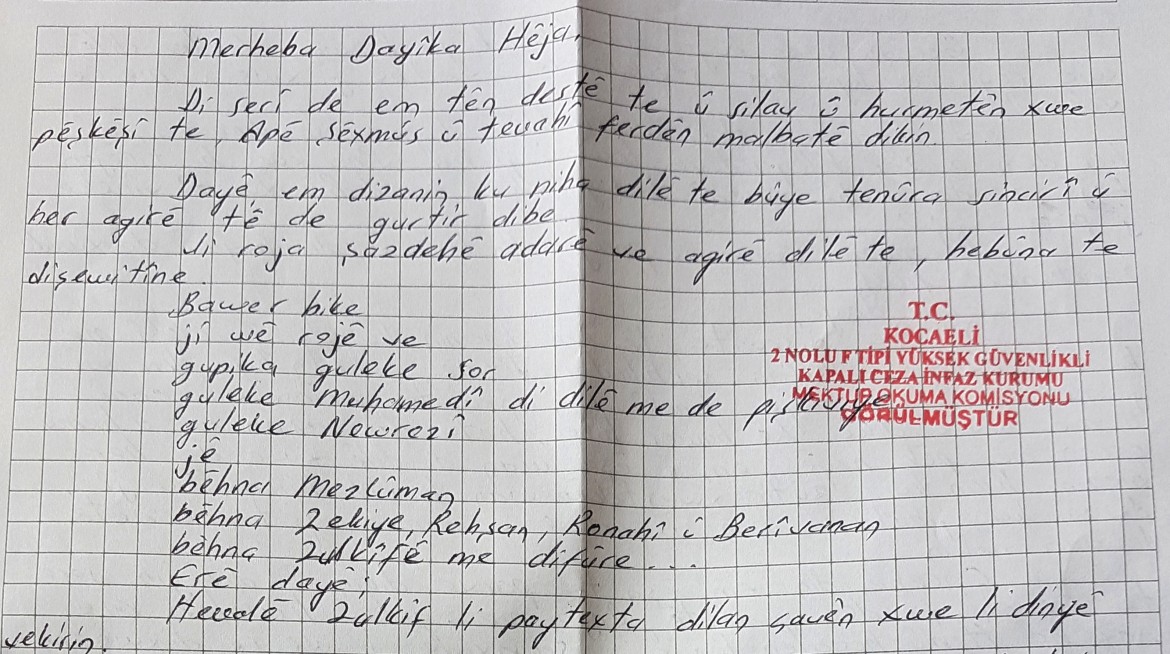 Merheba Dayîka Hêja,
Di serî de em tên destê te û silav û hurmetên xwe
pêşkêşî te, Apê Şêxmûs û tevahî ferdên malbatê dikin.
Dayê, em dizanin ku niha dilê te bûye tenûra sincirî û
her agirê tê de gurtir dibe.
Ji roja şazdehê adarê ve agirê dilê te, hebûna te
dişewitîne
Bawer bike
ji wê rojê ve
gupika guleke sor
guleke Muhamedî di dilê me de
guleke Newrozî
Jê
bêhna Mezlûman
bêhna Zekiye, Rehşan, Ronahî û Berîvanan
bêhna Zulkifê me difûre...
Erê dayê;
Hevalê Zulkif li paytexta dilan çavên xwe li dinyê
vekirin.
T.C.
KOCAELİ
2 NOLU F TİPİ YÜKSEK GÜVENLİKLİ
KAPALI CEZA İNFAZ KURUMU
MEKTUP OKUMA KOMİSYONU
GÖRÜLMÜŞTÜR